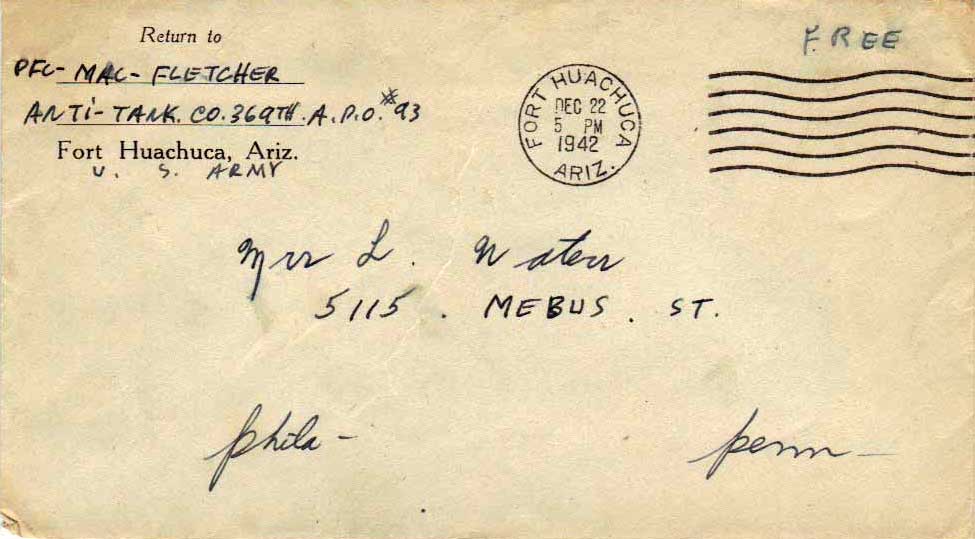 Return to
PFC - MAC - FLETCHER
ANTI - TANK. CO. 369TH. A.P.O. # 93
Fort Huachuca, Ariz.
U. S. ARMY
FREE
FORT HUACHUCA
DEC 22
5 PM
1942
ARIZ.
Mrs L. Waters
5115 . MEBUS . ST.
phila -
penn -